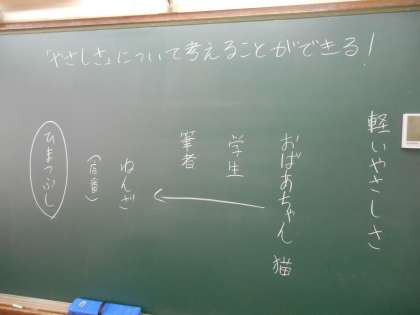 「やさしさ」について考えることができる!
軽いやさしさ
おばあちゃん 猫
学生
筆者
ねんざ
ひまつぶし